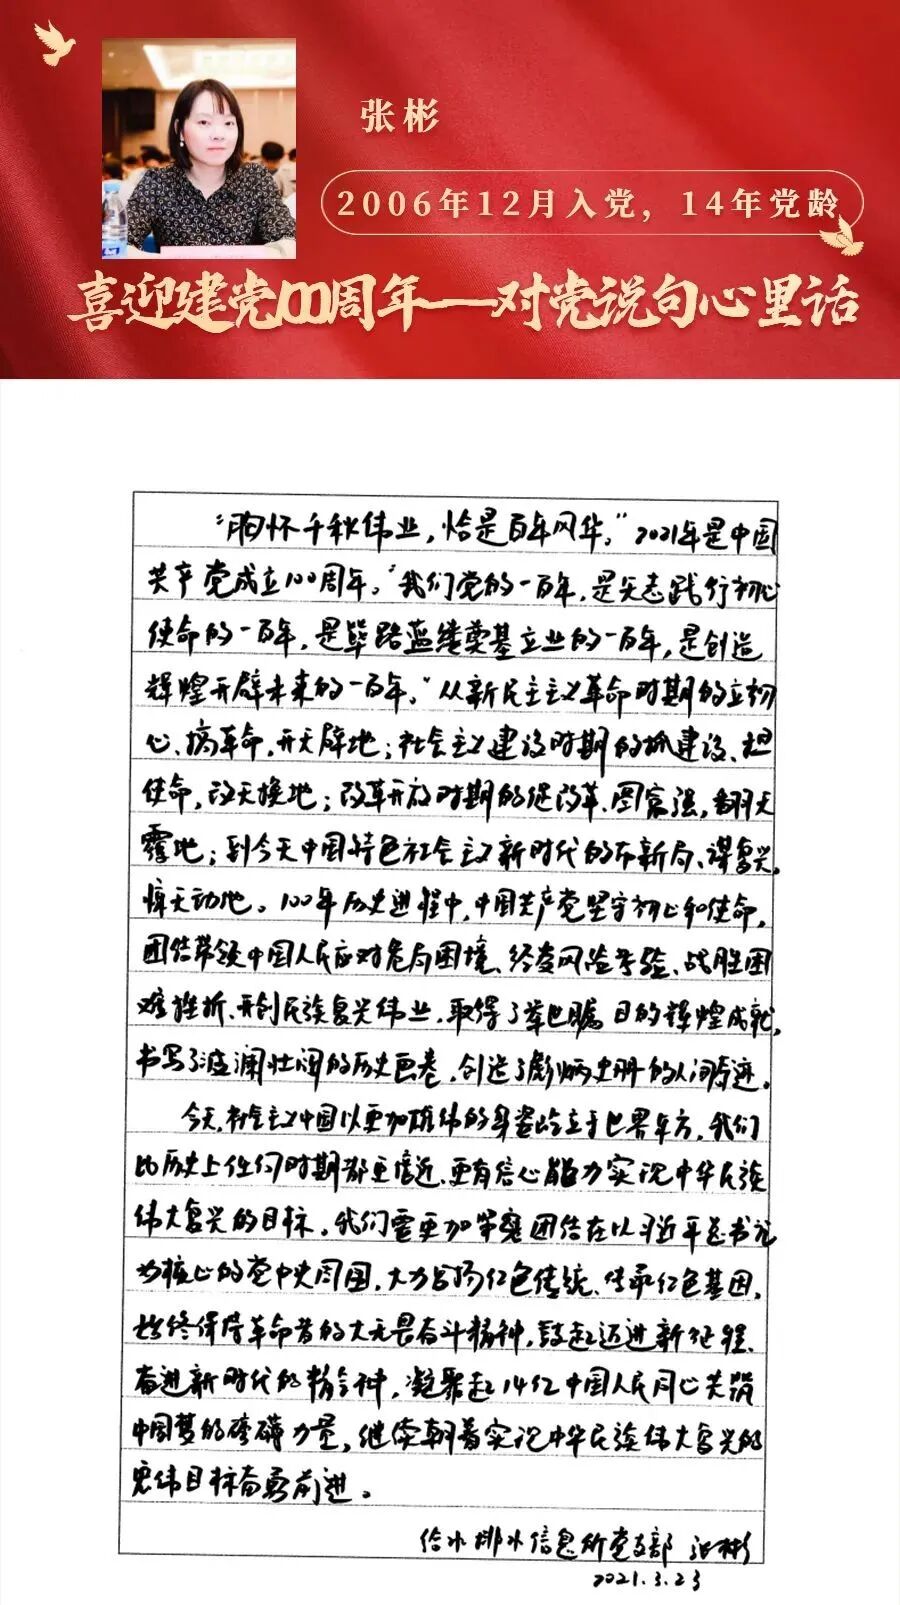 张彬
2006年12月入党，14年党龄
喜迎建党100周年——对党说句心里话
“胸怀千秋伟业，恰是百年风华。”2021年是中国
共产党成立100周年。“我们党的一百年，是矢志践行初心
使命的一百年，是筚路蓝缕奠基立业的一百年，是创造
辉煌开辟未来的一百年。”从新民主主义革命时期的立初
心、搞革命，开天辟地；社会主义建设时期的抓建设、担
使命，改天换地；改革开放时期的促改革、图富强，翻天
覆地；到今天中国特色社会主义新时代的布新局、谋复兴，
惊天动地。100年历史进程中，中国共产党坚守初心和使命，
团结带领中国人民应对危局困境、经受风险考验、战胜困
难挫折、开创民族复兴伟业，取得了举世瞩目的辉煌成就，
书写了波澜壮阔的历史画卷，创造了彪炳史册的人间奇迹。
今天，社会主义中国以更加雄伟的身姿屹立于世界东方，我们
比历史上任何时期都更接近、更有信心能力实现中华民族
伟大复兴的目标。我们需更加紧密团结在以习近平总书记
为核心的党中央周围，大力弘扬红色传统、传承红色基因，
始终保持革命者的大无畏奋斗精神，鼓起迈进新征程、
奋进新时代的精气神，凝聚起14亿中国人民同心共筑
中国梦的磅礴力量，继续朝着实现中华民族伟大复兴的
宏伟目标奋勇前进。
给水排水信息所党支部 张彬
2021.3.23